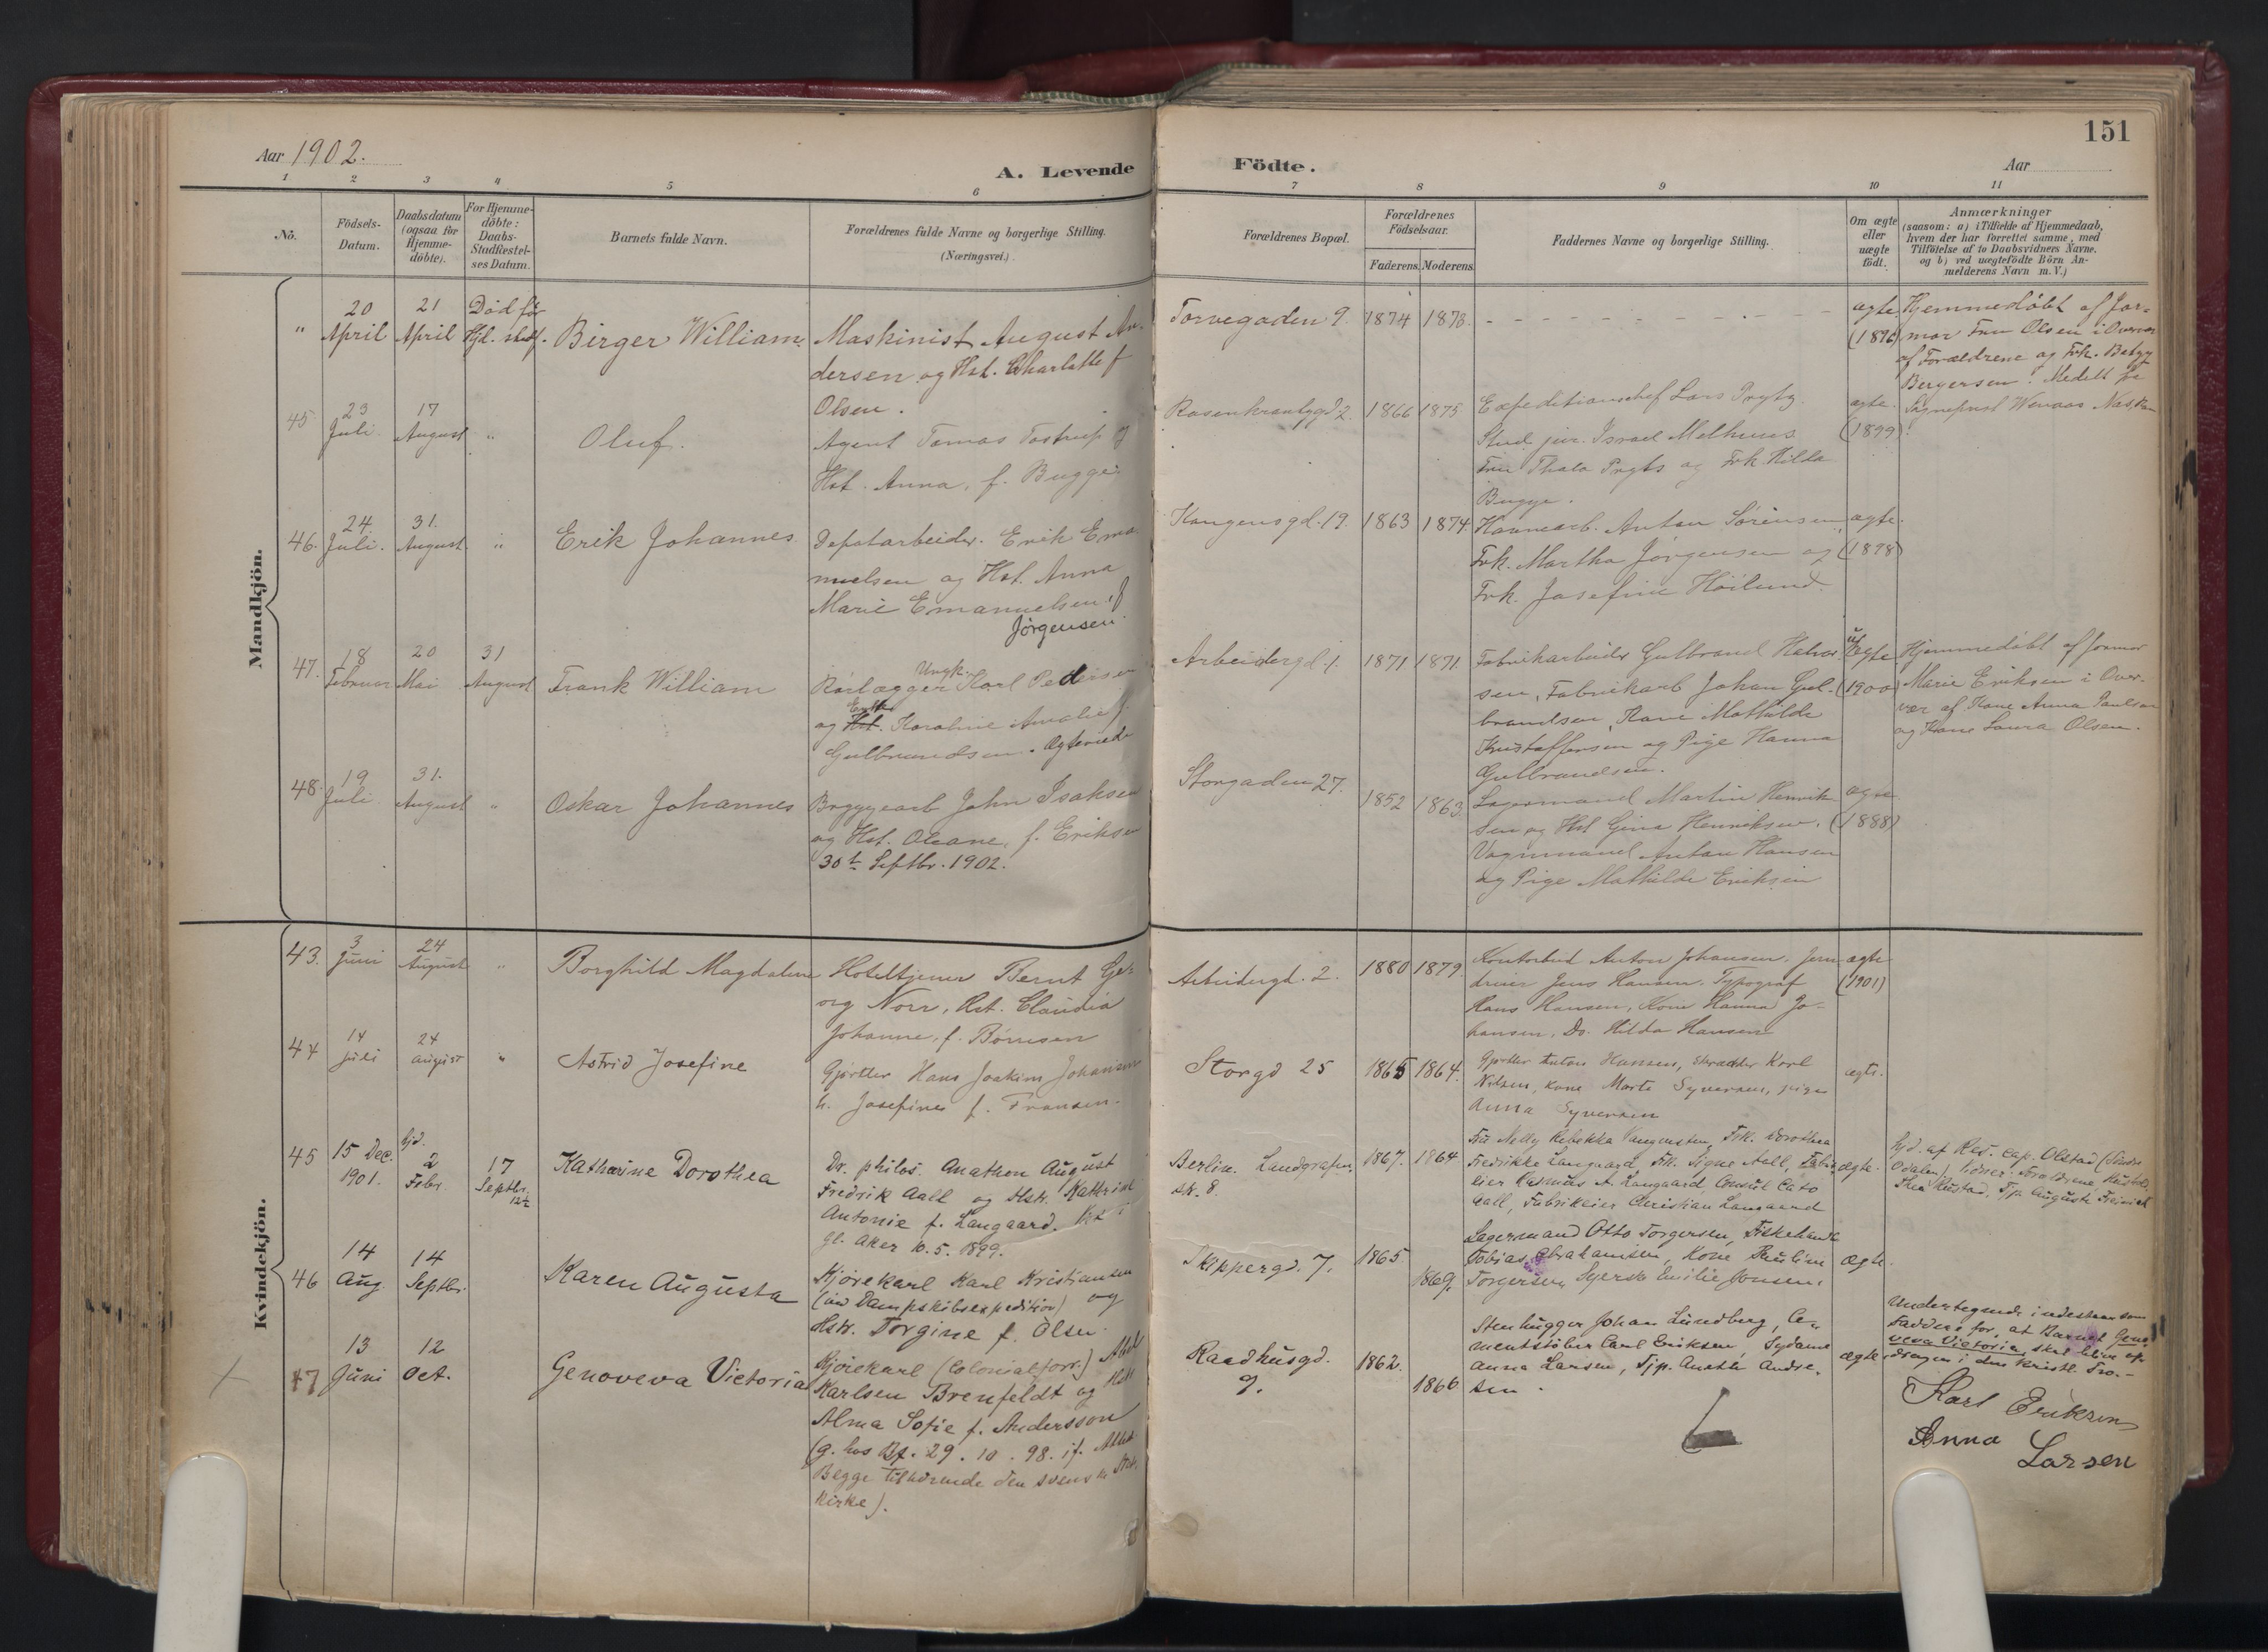 151
Aar 1902.
A. Levende
Födte.
Aar
1 2 3 4 5 6 7 8 9 10 11
No.
Födsels-Datum.
Daabsdatum (ogsaa for Hjemme-döbte).
For Hjemme-döbte: Daabs-Stadfæstel-ses Datum.
Barnets fulde Navn.
Forældrenes fulde Navne og borgerlige Stilling.
(Næringsvei.)
Forældrenes Bopæl.
Forældrenes Födselsaar.
Faderens. Moderens.
Faddernes Navne og borgerlige Stilling.
Om ægte eller uægte födt.
Anmærkninger
(saasom: a) i Tilfælde af Hjemmedaab,
hvem der har forrettet samme, med
Tilföielse af to Daabsvidners Navne.
og b) ved uægtefödte Börn An-
melderens Navn m. V.)
Mandkjön.
" 20 April 21 April Död før Hjd. stadf.
Birger William
Maskinist August An-
dersen og Hst. Charlotte f
Olsen.
Torvegaden 9. 1874 1878.
ægte (1896)
Hjemmedøbt af Jor-
mor Fru Olsen i Overvær
af Forældrene og Frk. Betzy
Bergersen. Medelt fra
Sognepræst Wenaas
45 23 Juli 17 August "
Oluf.
Agent Tomas Tostrup og
Hst. Anna, f. Bugge
Rosenkrantzgd 2. 1866 1875
Expeditionschef Lars Prytz
Stud jur. Israel Melhuus
Fru Thala Prytz og Frk Hilda
Bugge.
ægte. (1899)
46. 24. Juli. 31. August "
Erik Johannes
Depotarbeider. Erik Ema
nuelsen og Hst. Anna
Marie Emanuelsen, f
Jörgensen.
Kongensgd. 19. 1863 1874.
Havnearb. Anton Sörensen,
Frk. Martha Jörgensen og
Frk. Josefine Höilund.
ægte. (1898)
47. 18 Februar 20 Mai 31 August
Frank William
Ungk.
Rörlægger Karl Pedersen
Enke
og Hst. Karoline Amalie f.
Gulbrandsen. Ægteviede
Arbeidergd. 1. 1871 1871.
Fabrikarbeider Gulbrand Halvor
sen, Fabrikarb Johan Gul-
brandsen, Kone Mathilde
Kristoffersen og Pige Hanna
Gulbrandsen.
uægte (1900)
Hjemmedöbt af formor
Marie Eriksen i Over-
vær af Kone Anna Paulsen
og Kone Laura Olsen.
48. 19 Juli 31. August "
Oskar Johannes
Bryggearb John Isaksen
og Hst. Oleane, f. Eriksen
30te Septbr. 1902.
Storgaden 27. 1852 1863.
Lagermand Martin Henrik
sen og Hst Gina Henriksen.
Vognmand Anton Hansen
og Pige Mathilde Eriksen
ægte (1888)
Kvindekjön.
43. 3 Juni 24 August "
Borghild Magdalene
Hoteltjener Bernt Ge-
org Norr, Hst. Claudia
Johanne, f. Börresen
Arbeidergd. 2. 1880 1879.
Kontorbud Anton Johansen. Jern
dreier Jens Hansen. Typograf
Hans Hansen, Kone Hanna Jo-
hansen, Do. Hilda Hansen
ægte (1901)
44 14 juli 24 august "
Astrid Josefine
Gjørtler Hans Joakim Johansen
h. Josefine f. Fransen.
Storgd 25 1865 1864.
Gjørtler Anton Hansen, skrædder Karl
Nilsen, kone Marte Syversen, pige
Anna Syversen
ægte.
45 15 Dec. 1901. hjd. 2 Febr. 17 Septbr. 12½
Katharine Dorothea
Dr. philos. Anathon August
Fredrik Aall og Hstr. Kathrine
Antonie f. Langaard.
gl. Aker 10. 5. 1899.
Berlin. Landgrafen-
str. 8. 1867. 1864
Fru Nelly Rebekka Vangensten, Frk. Dorothea
Fredrikke Langaard, Frk. Signe Aall, Fabrik
eier Rasmus A. Langaard, Consul Cato
Aall, Fabrikeier Christian Langaard
ægte.
hjd. af Res. cap. Olstad (Søndre
Odalen). Vidner: Forældrene,
Thea Rustad. Tjp. Auguste
46 14 Aug. 14 Septbr.
Karen Augusta
Kjørekarl Karl Kristiansen
(ved Dampskibsexpedition) og
Hstr. Torgine f. Olsen.
Skippergd. 7. 1865 1869.
Lagermand Otto Torgersen, Fiskehandl
Tobias Abrahamsen, Kone Pauline
Torgersen, Syerske Emilie Jonsen.
ægte.
47 13 Juni 12 Oct.
Genoveva Victoria
Kjørekarl (Colonialforr.) Axel
Karlsen Brenfeldt og Hstr
Alma Sofie f. Andersson
(g. hos Bf. 29. 10. 98. if. Attest
Begge tilhørende den svenske Stats-
kirke).
Raadhusgd.
9. 1862. 1866
Stenhugger Johan Lundberg, Ce-
mentstöber Carl Eriksen, Sydame
Anna Larsen, Tjp. Anathe Andre-
sen.
ægte
Undertegnede indestaar som
Faddere for, at Barnet Geno
veva Victoria skal blive op-
dragen i den kristl. Tro.-
Karl Eriksen
Anna Larsen